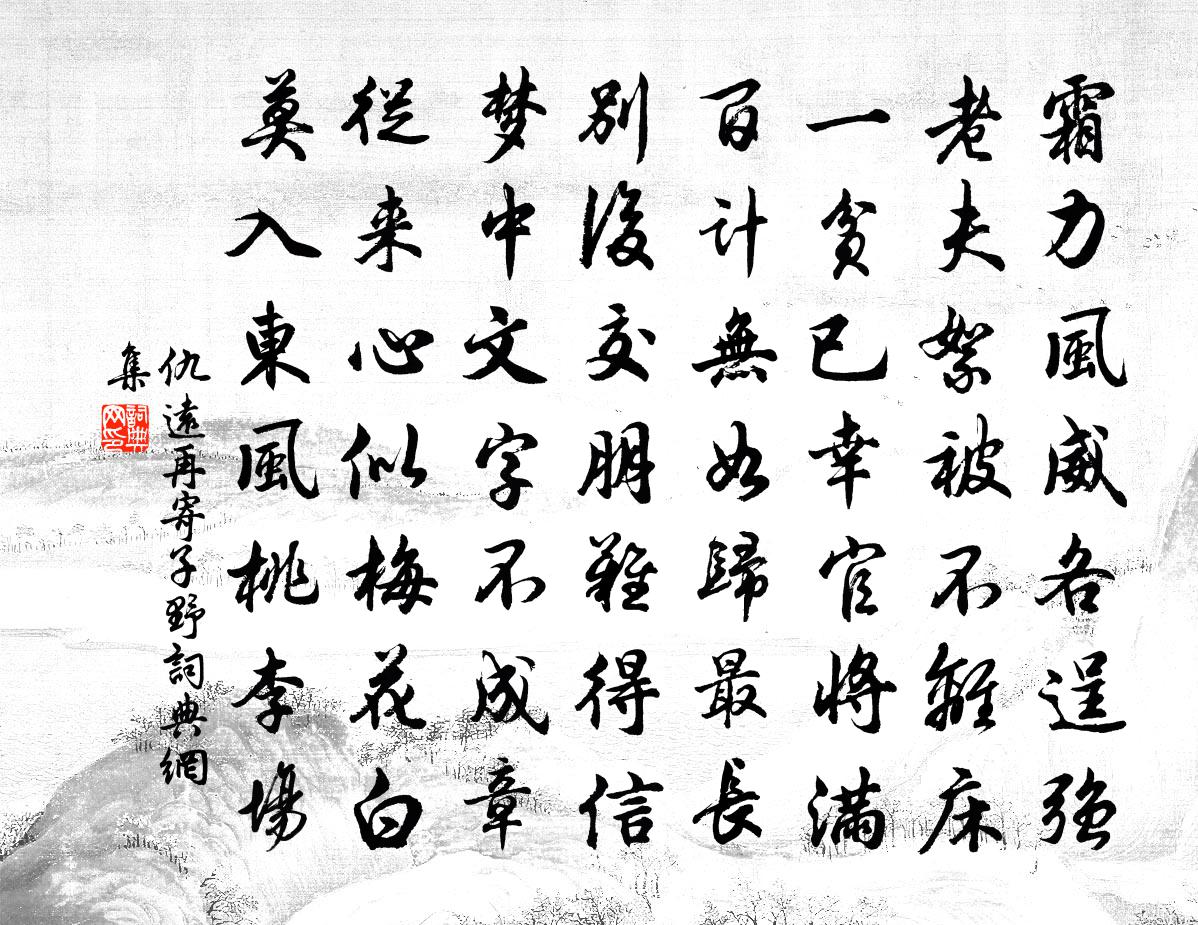 霜力風威各逞强
老夫絮被不離床
一貧已幸官將滿
百計無如歸最長
別後交朋難得信
梦中文字不成章
從来心似梅花白
莫入東風桃李場
仇遠再寄子野詞典網
集
詞典网印